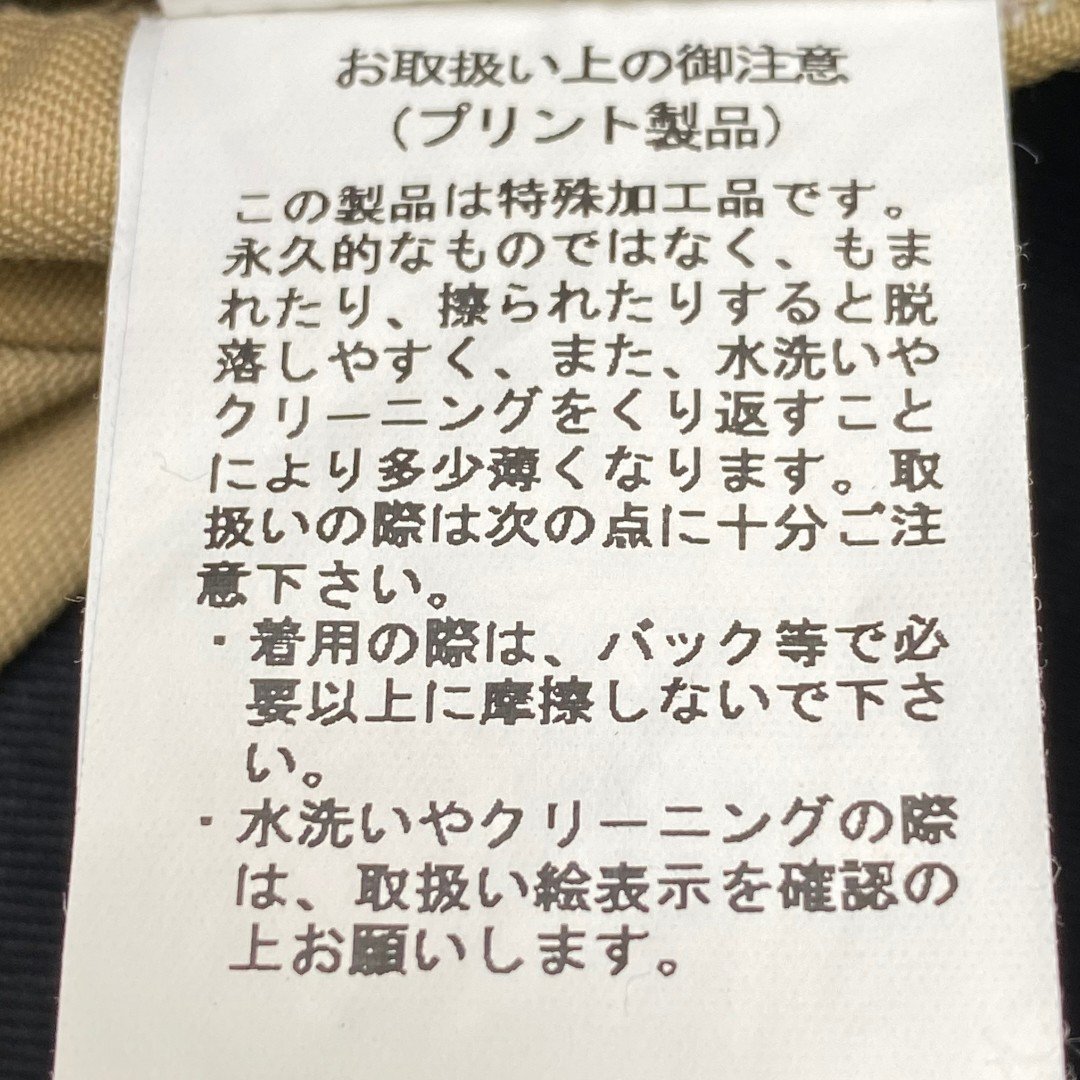 お取扱い上の御注意
（プリント製品）
この製品は特殊加工品です。
永久的なものではなく、もま
れたり、擦られたりすると脱
落しやすく、また、水洗いや
クリーニングをくり返すこと
により多少薄くなります。取
扱いの際は次の点に十分ご注
意下さい。
・着用の際は、バック等で必
要以上に摩擦しないで下さ
い。
・水洗いやクリーニングの際
は、取扱い絵表示を確認の
上お願いします。